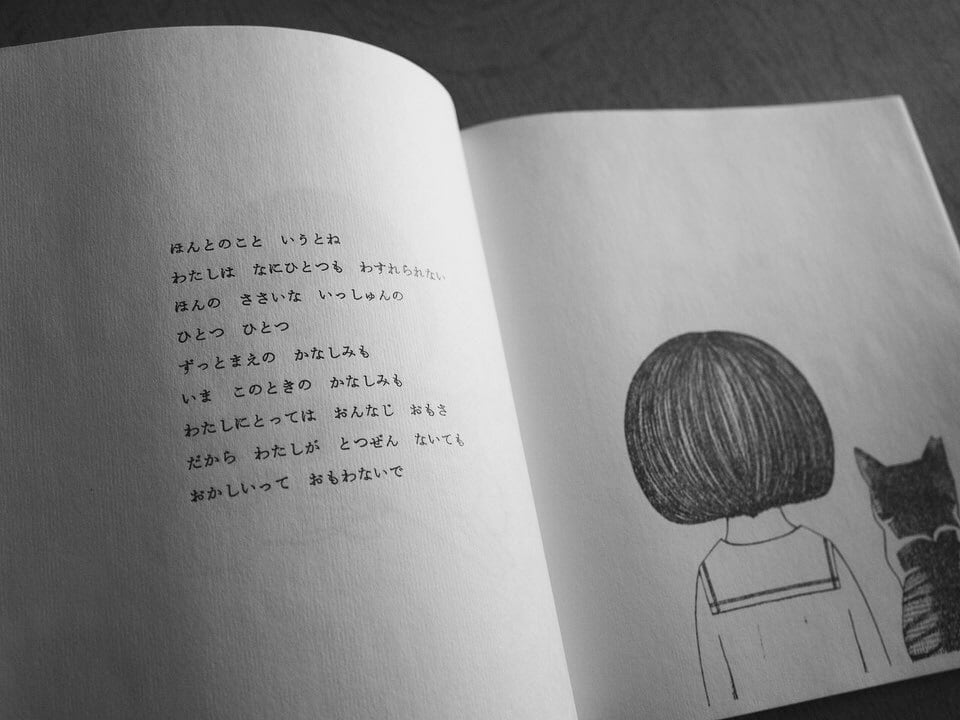 ほんとのこと　いうとね
わたしは　なにひとつも　わすれられない
ほんの　ささいな　いっしゅんの
ひとつ　ひとつ
ずっとまえの　かなしみも
いま　このときの　かなしみも
わたしにとっては　おんなじ　おもさ
だから　わたしが　とつぜん　ないても
おかしいって　おもわないで